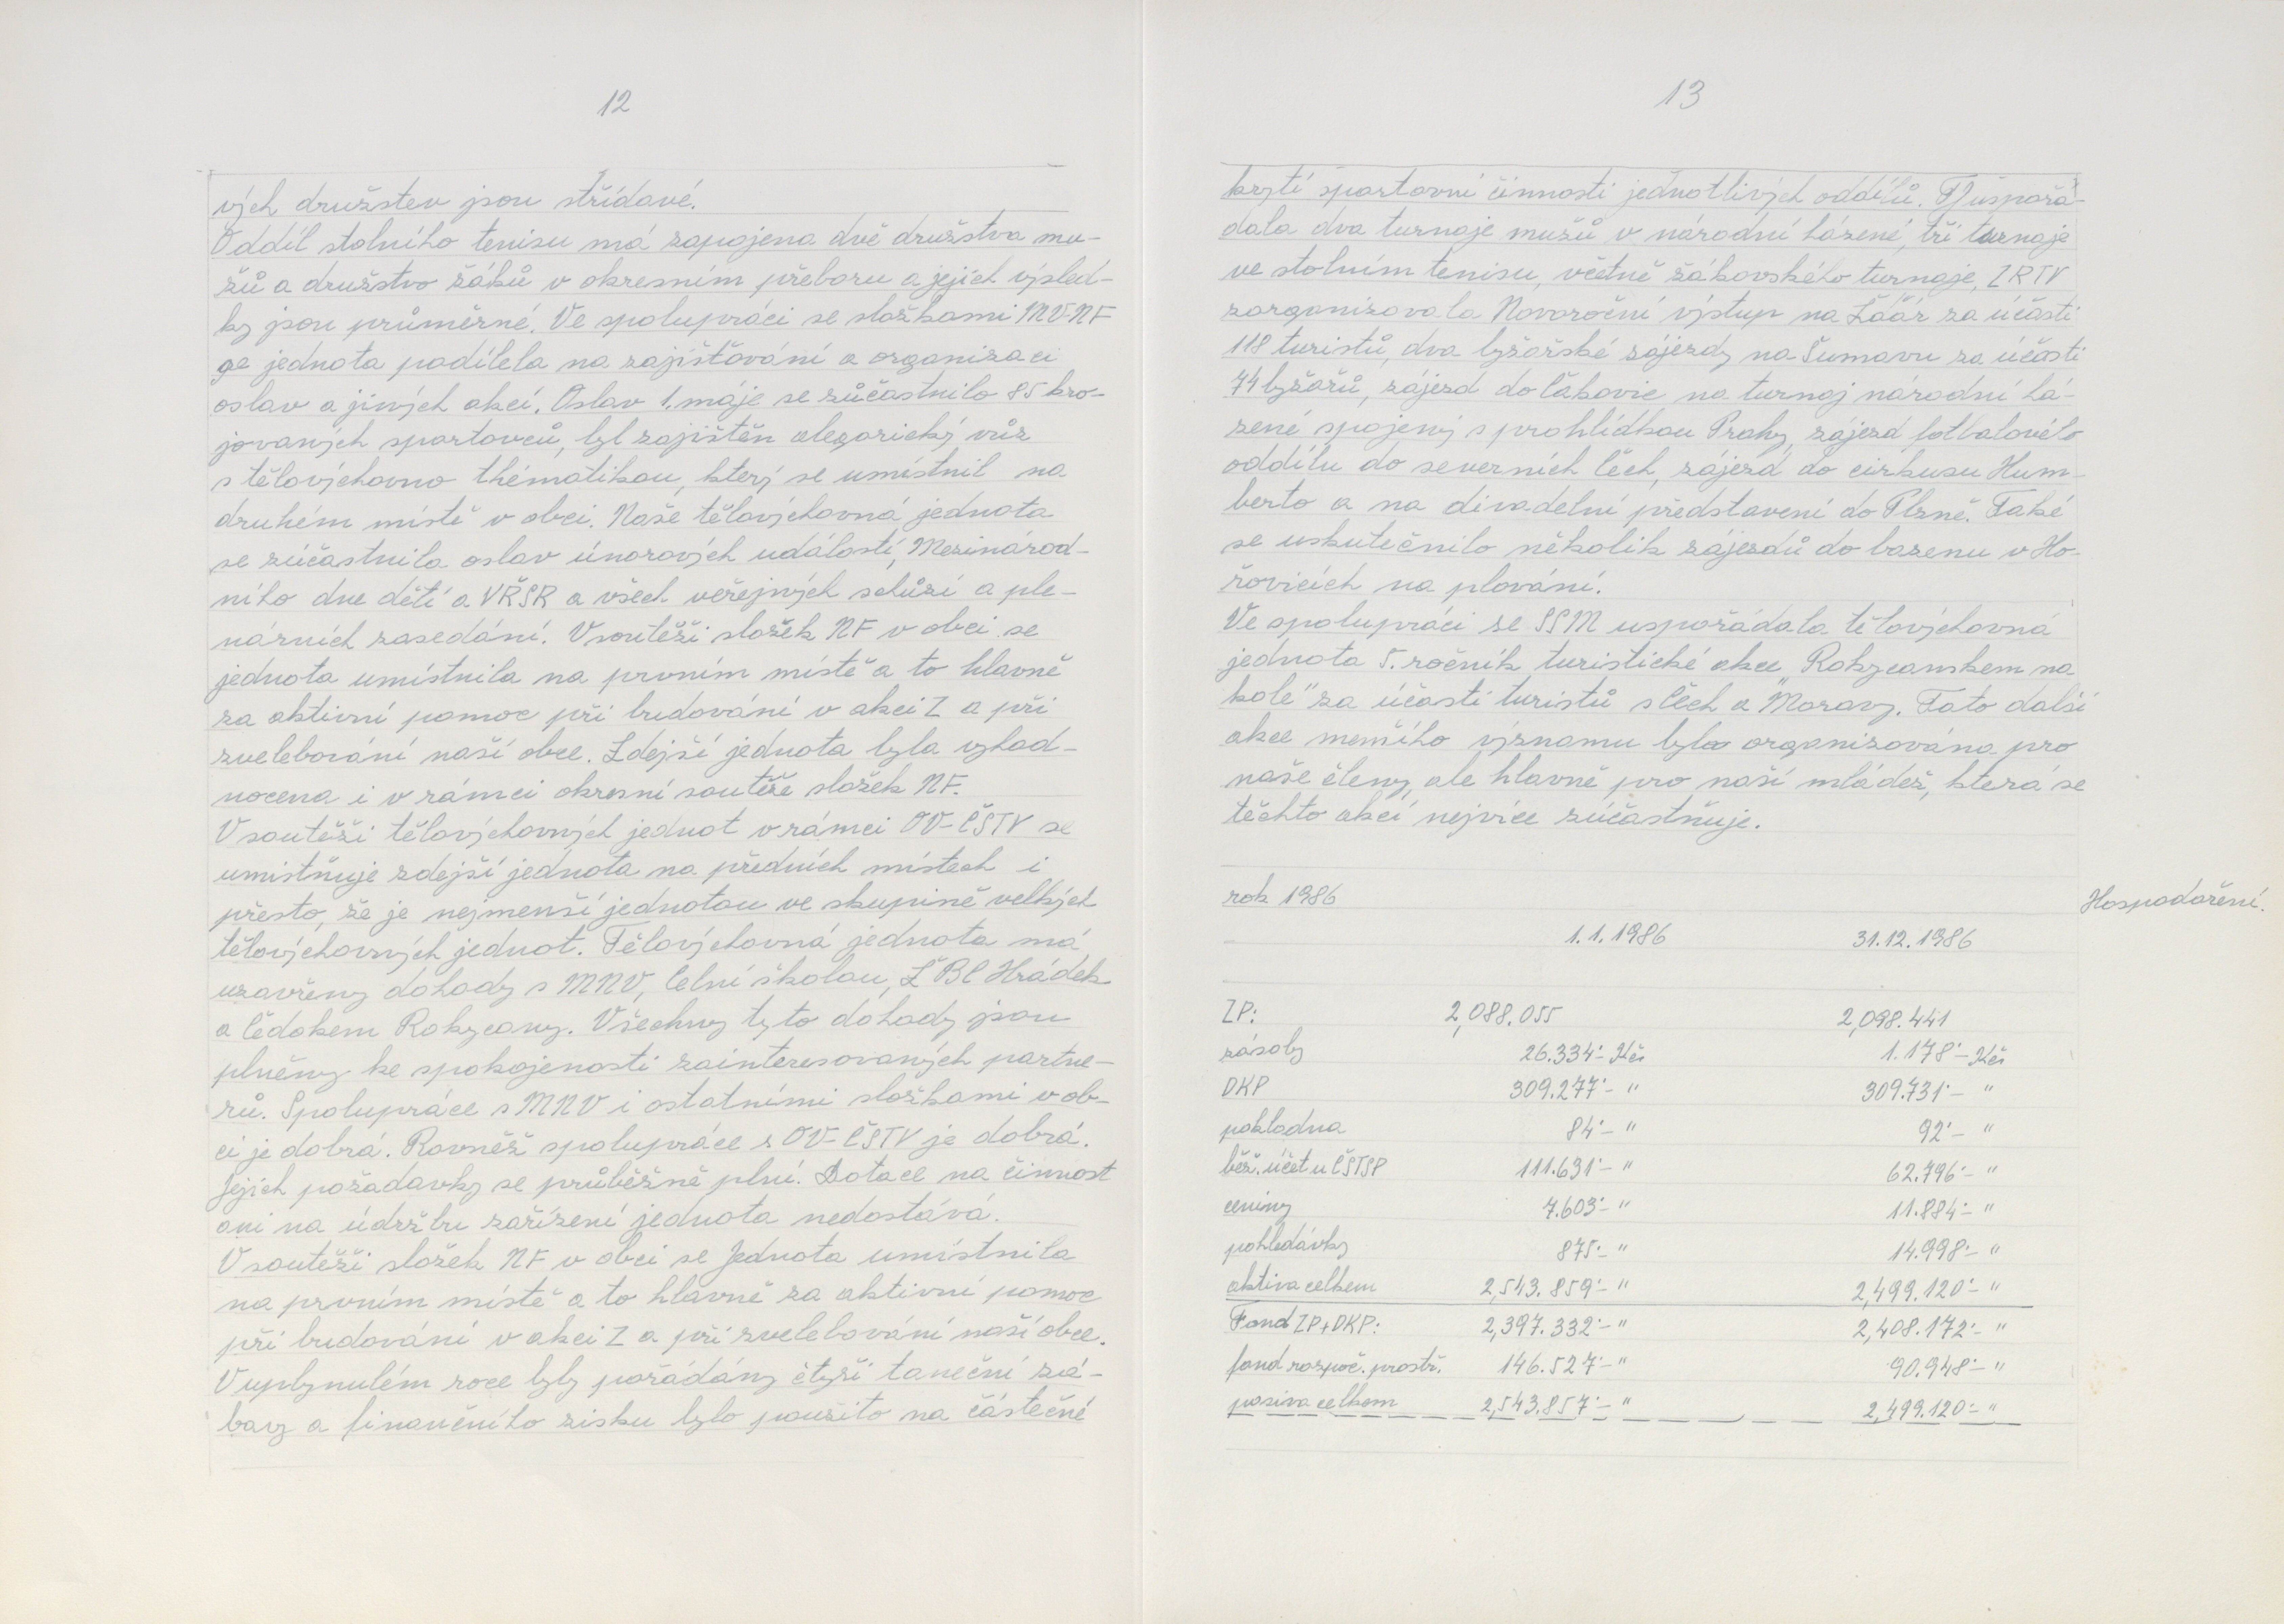 12
vých družstev jsou střídavé.
Oddíl stolního tenisu má zapojena dvě družstva mu-
žů a družstvo žáků v okresním přeboru a jejich výsled-
ky jsou průměrné. Ve spolupráci se složkami MV-NF
se jednota podílela na zajišťování a organizaci
oslav a jiných akcí. Oslav 1. máje se zúčastnilo 85 kro-
jovaných sportovců, byl zajištěn alegorický vůz
s tělovýchovno thématikou, který se umístnil na
druhém místě v obci. Naše tělovýchovná jednota
se zúčastnila oslav únorových událostí, Mezinárod-
ního dne dětí a VŘSR a všech veřejných schůzí a ple-
nárních zasedání. V soutěži složek NF v obci se
jednota umístnila na prvním místě a to hlavně
za aktivní pomoc při budování v akci Z a při
zvelebování naší obce. Zdejší jednota byla vyhod-
nocena i v rámci okresní soutěže složek NF.
V soutěži tělovýchovných jednot v rámci OV-ČSTV se
umisťňuje zdejší jednota na předních místech i
přesto, že je nejmenší jednotou ve skupině velkých
tělovýchovných jednot. Tělovýchovná jednota má
uzavřeny dohody s MNV, Celní školou, ŽBC Hrádek
a Čedokem Rokycany. Všechny tyto dohody jsou
plněny ke spokojenosti zainteresovaných partne-
rů. Spolupráce s MNV i ostatními složkami v ob-
ci je dobrá. Rovněž spolupráce s OV-ČSTV je dobrá.
Jejich požadavky se průběžně plní. Dotace na činnost
ani na údržbu zařízení jednota nedostává.
V soutěži složek NF v obci se Jednota umístnila
na prvním místě a to hlavně za aktivní pomoc
při budování v akci Z a při zvelebování naší obce.
V uplynulém roce byly pořádány čtyři taneční zá-
bavy a finančního zisku bylo použito na částečné
13
krytí sportovní činnosti jednotlivých oddílů. TJ uspořá-
dala dva turnaje mužů v národní házené, tři turnaje
ve stolním tenisu, včetně žákovského turnaje, ZRTV
zorganizovala Novoroční výstup na Žďár za účasti
118 turistů, dva lyžařské zájezdy na Šumavu za účasti
74 lyžařů, zájezd do Čakovic na turnaj národní há-
zené spojený s prohlídkou Prahy, zájezd fotbalového
oddílu do severních Čech, zájezd do cirkusu Hum-
berto a na divadelní představení do Plzně. Také
se uskutečnilo několik zájezdů do bazenu v Ho-
řovicích na plování.
Ve spolupráci se SSM uspořádala tělovýchovná
jednota 5. ročník turistické akce "Rokycanskem na
kole" za účasti turistů s Čech a Moravy. Tato další
akce menšího významu byla organizována pro
naše členy, ale hlavně pro naší mládež, která se
těchto akcí nejvíce zúčastňuje.
rok 1986 Hospodaření.
1.1.1986 31.12.1986
ZP: 2,088.055 2,098.441
zásoby 26.334·- Kčs 1.178·- Kčs
DKP 309.277·- " 309.731·- "
pokladna 84·- " 92·- "
běž. účet u ČSTSP 111.631·- " 62.796·- "
ceniny 7.603·- " 11.884·- "
pohledávky 875·- " 14.998·- "
aktiva celkem 2,543.859·- " 2,499.120·- "
Fond ZP+DKP: 2,397.332·- " 2,408.172·- "
fond rozpoč. prostř. 146.527·- " 90.948·- "
pasiva celkem 2,543.857·- " 2,499.120·- "